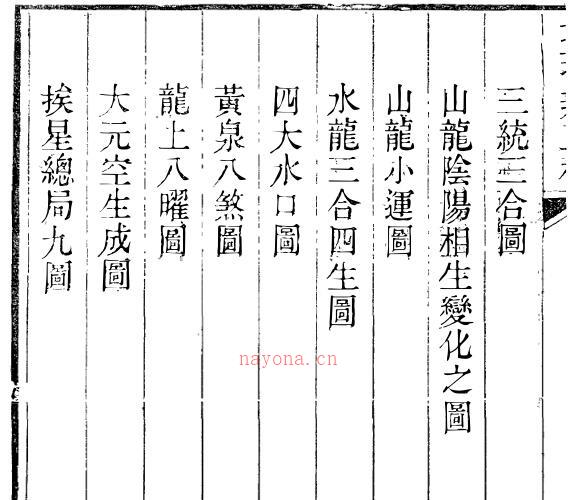 三統三合圖
山龍陰陽相生變化之圖
山龍小運圖
水龍三合四生圖
四大水口圖
黃泉八煞圖
龍上八曜圖
大元空生成圖
挨星總局九圖
nayona.cn